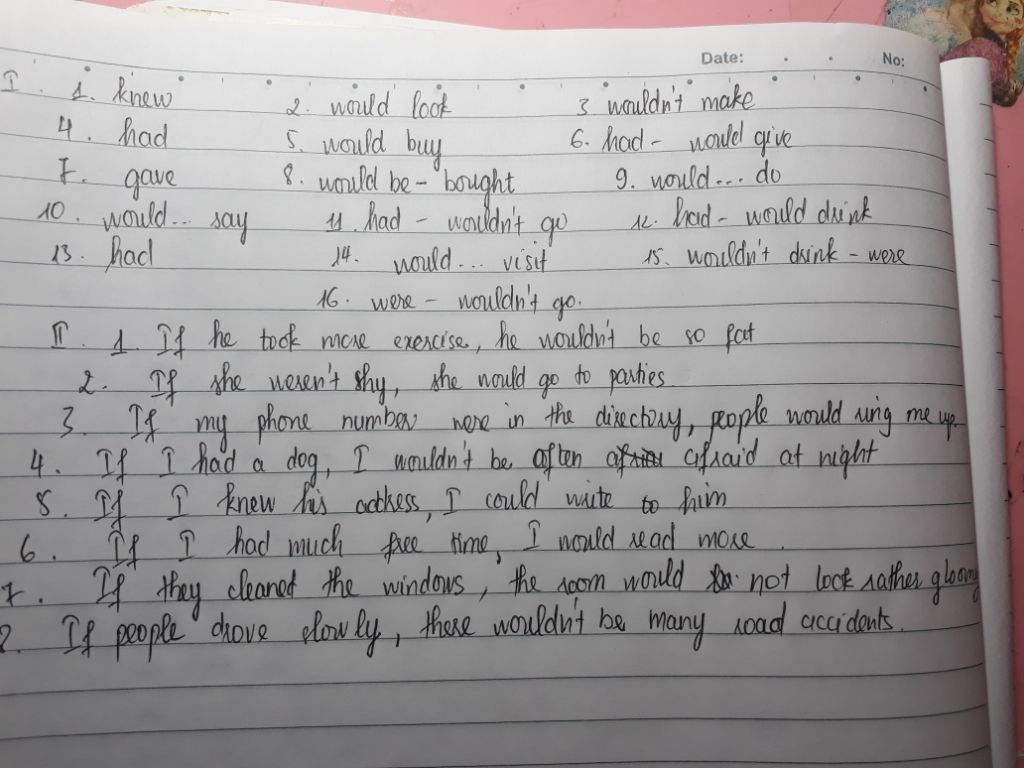 Date: . . No:
I. 1. knew 2. would look 3 wouldn't make
4. had 5. would buy 6. had - would give
7. gave 8. would be - bought 9. would... do
10. would... say 11. had - wouldn't go 12. had - would drink
13. had 14. would... visit 15. wouldn't drink - were
16. were - wouldn't go.
II. 1. If he took more exercise, he wouldn't be so fat
2. If she weren't shy, she would go to parties
3. If my phone number were in the directory, people would ring me up.
4. If I had a dog, I wouldn't be often afraid at night
5. If I knew his address, I could write to him
6. If I had much free time, I would read more.
7. If they cleaned the windows, the room would not look rather gloomy
8. If people drove slowly, there wouldn't be many road accidents.